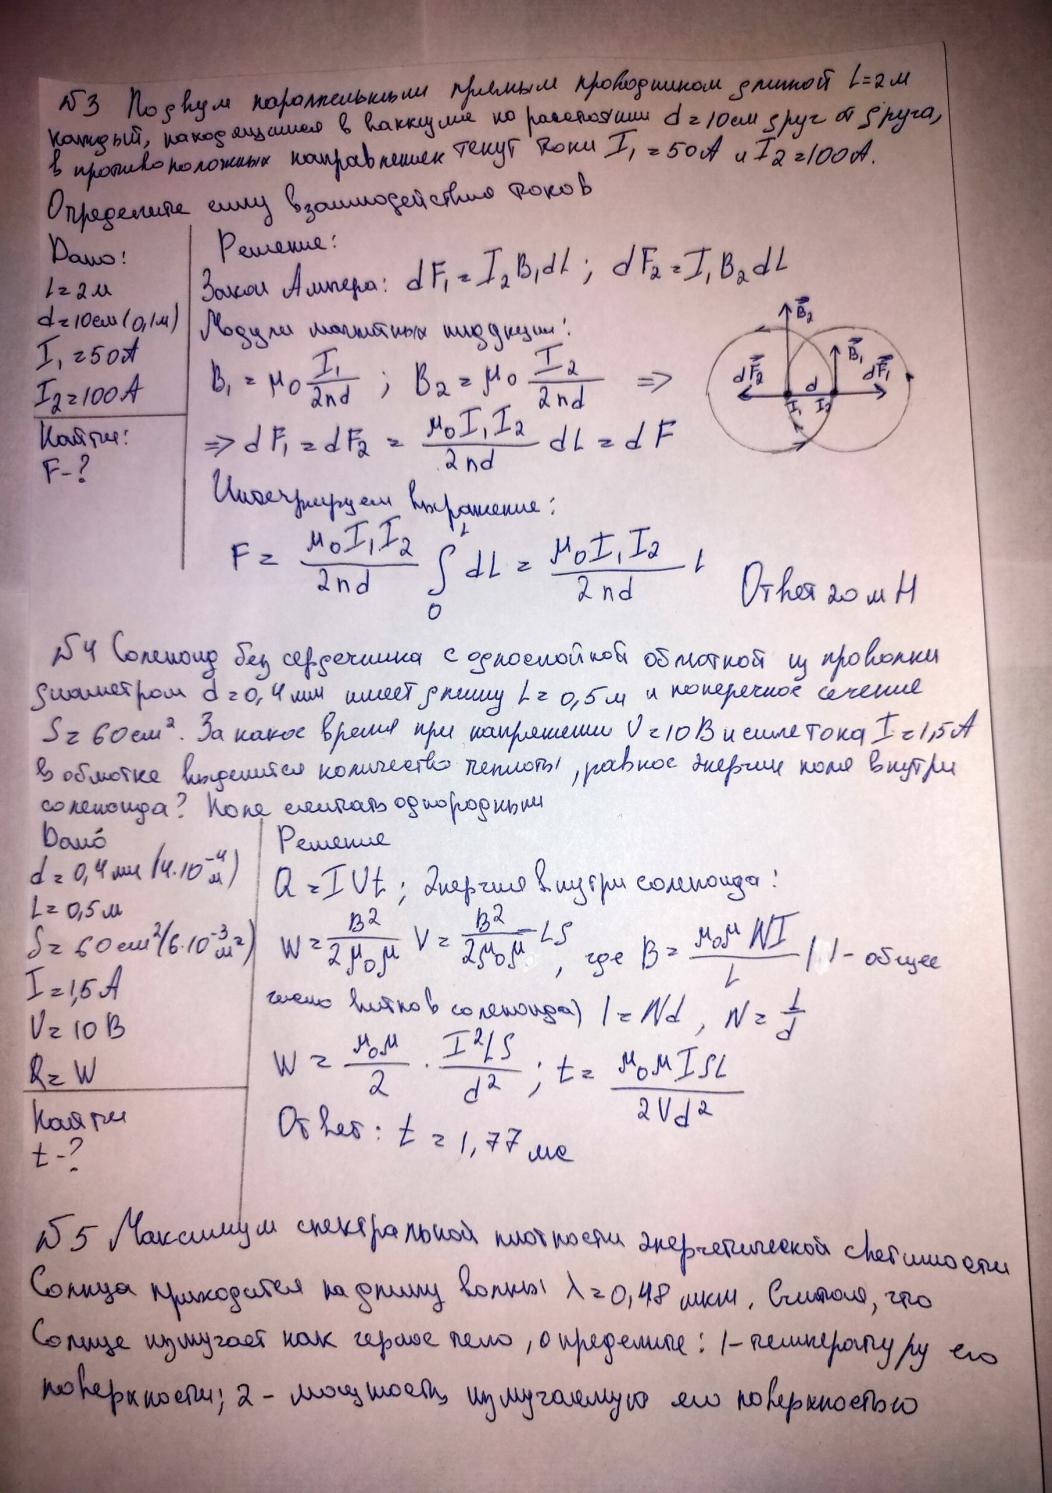 №3 По двум параллельным прямым проводникам длинной L=2м
каждый, находящимся в ваккуме на расстоянии d=10см друг от друга,
в противоположных направлениях текут токи I₁=50А и I₂=100А.
Определите силу взаимодействия токов
Дано:
L=2м
d=10см(0,1м)
I₁=50А
I₂=100А
Найти:
F-?
Решение:
Закон Ампера: dF₁=I₂B₁dL; dF₂=I₁B₂dL
Модули магнитных индукции:
B₁=μ₀ I₁/2πd ; B₂=μ₀ I₂/2πd =>
=> dF₁=dF₂= μ₀I₁I₂/2πd dL=dF
Интегрируем выражение:
F= μ₀I₁I₂/2πd ∫₀ᴸ dL= μ₀I₁I₂/2πd L
Ответ 20мН
B₂
B₁
dF₂
d
dF₁
I₁ I₂
№4 Соленоид без сердечника с однослойной обмоткой из проволки
диаметром d=0,4мм имеет длину L=0,5м и поперечное сечение
S=60см². За какое время при напряжении V=10В и силе тока I=1,5А
в обмотке выделится количество теплоты, равное энергии поля внутри
соленоида? Поле считать однородным
Дано
d=0,4мм(4·10⁻⁴м)
L=0,5м
S=60см²(6·10⁻³м²)
I=1,5А
V=10В
Q=W
Найти
t-?
Решение
Q=IVt; Энергия внутри соленоида:
W= B²/2μ₀μ V= B²/2μ₀μ LS, где B= μ₀μNI/L (1-общее
число витков соленоида) l=Nd, N= L/d
W= μ₀μ/2 · I²LS/d² ; t= μ₀μISL/2Vd²
Ответ: t=1,77мс
№5 Максимум спектральной плотности энергетической светимости
Солнца приходится на длину волны λ=0,48 мкм. Считая, что
Солнце излучает как черное тело, определите: 1-температуру его
поверхности; 2-мощность, излучаемую его поверхностью